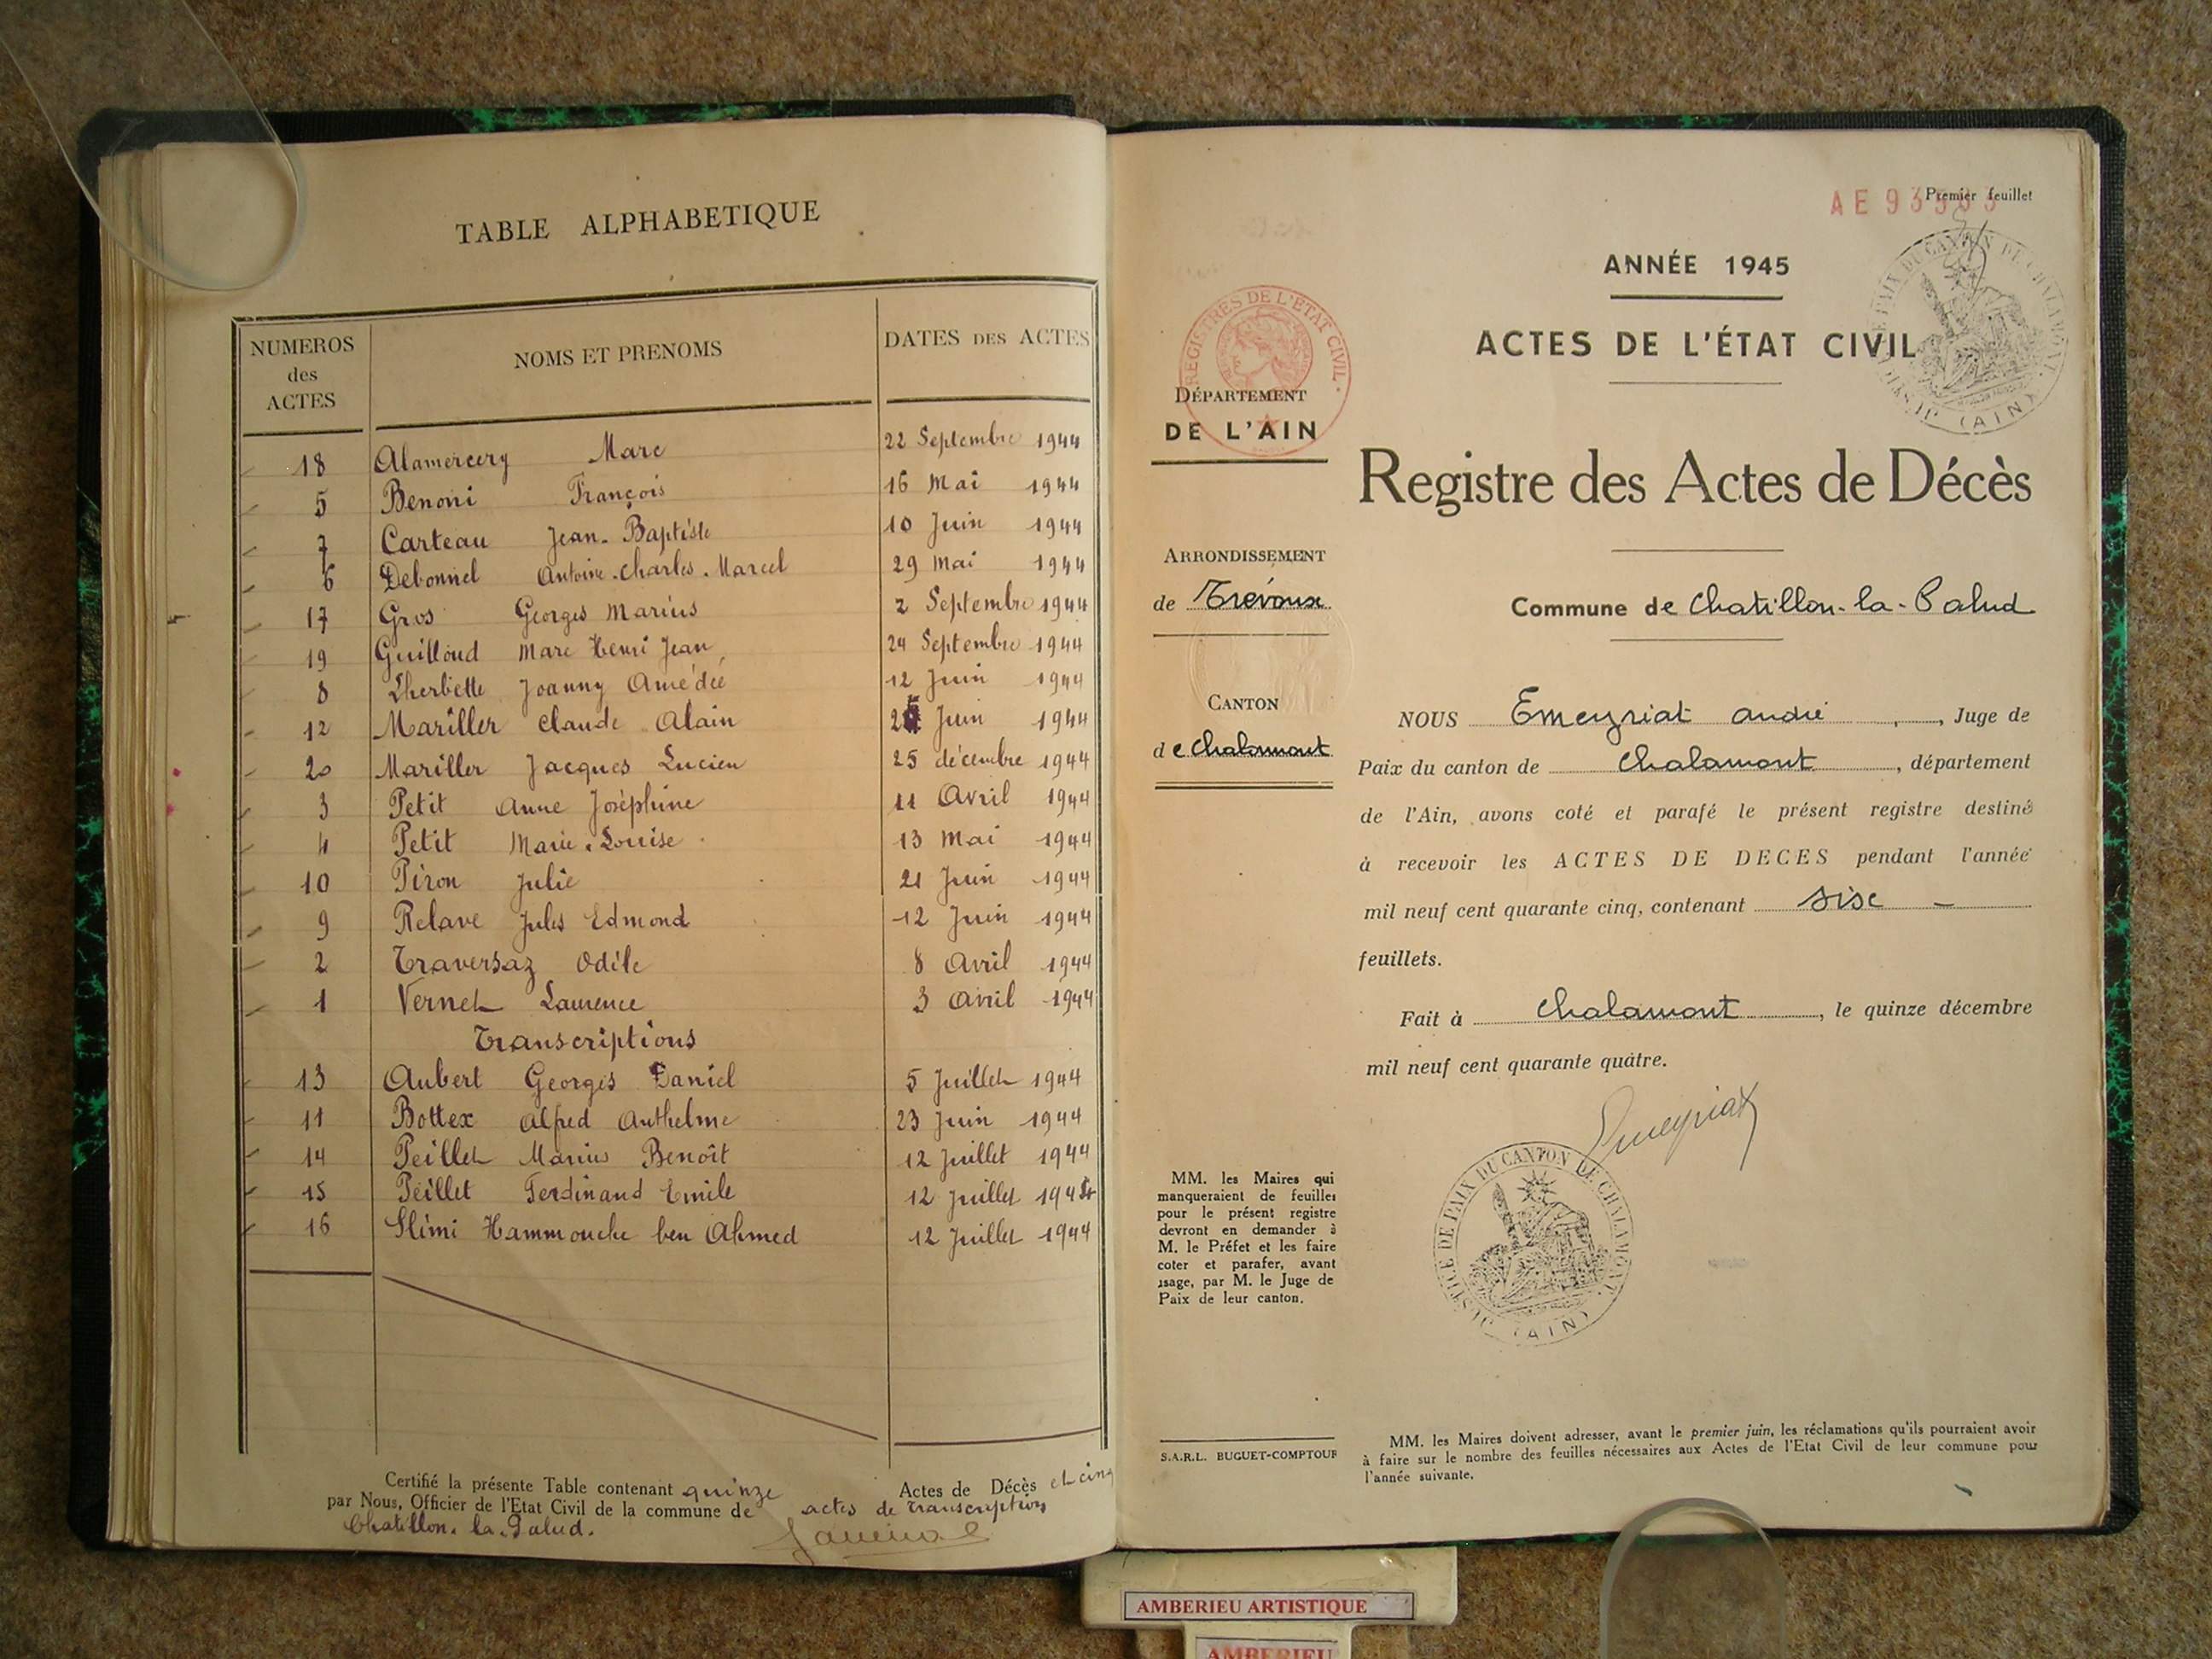 TABLE ALPHABETIQUE
NUMEROS des ACTES NOMS ET PRENOMS DATES DES ACTES
18 Alamercery Marc 22 Septembre 1944
5 Benoni François 16 Mai 1944
7 Carteau Jean-Baptiste 10 Juin 1944
6 Debonnel Antoine-Charles-Marcel 29 Mai 1944
17 Gros Georges Marius 2 Septembre 1944
19 Guilloud Marc Henri Jean 24 Septembre 1944
8 Lherbette Joanny Amédée 12 Juin 1944
12 Mariller Claude Alain Juin 1944
20 Mariller Jacques Lucien 25 décembre 1944
3 Petit Anne Joséphine 11 Avril 1944
4 Petit Marie-Louise 13 Mai 1944
10 Piron Julie 21 Juin 1944
9 Relave Jules Edmond 12 Juin 1944
2 Traversaz Odile 8 Avril 1944
1 Vernet Laurence 3 Avril 1944
Transcriptions
13 Aubert Georges Daniel 5 Juillet 1944
11 Bottex Alfred Anthelme 23 Juin 1944
14 Peillet Marius Benoît 12 Juillet 1944
15 Peillet Ferdinand Emile 12 Juillet 1944
16 Slimi Hammouche ben Ahmed 12 Juillet 1944
Certifié la présente Table contenant quinze Actes de Décès et cinq
par Nous, Officier de l'Etat Civil de la commune de actes de transcription
Chatillon-la-Palud.
Premier feuillet
ANNÉE 1945
ACTES DE L'ÉTAT CIVIL
REGISTRES DE L'ETAT CIVIL
DÉPARTEMENT
DE L'AIN
Registre des Actes de Décès
ARRONDISSEMENT
de Trévoux
Commune de Chatillon-la-Palud
CANTON
de Chalamont
NOUS Emeyriat André, Juge de
Paix du canton de Chalamont, département
de l'Ain, avons coté et parafé le présent registre destiné
à recevoir les ACTES DE DECES pendant l'année
mil neuf cent quarante cinq, contenant sise
feuillets.
Fait à Chalamont, le quinze décembre
mil neuf cent quarante quatre.
Emeyriat
JUSTICE DE PAIX DU CANTON DE CHALAMONT
(AIN)
MM. les Maires qui
manqueraient de feuilles
pour le présent registre
devront en demander à
M. le Préfet et les faire
coter et parafer, avant
usage, par M. le Juge de
Paix de leur canton.
S.A.R.L. BUGUET-COMPTOUR
MM. les Maires doivent adresser, avant le premier juin, les réclamations qu'ils pourraient avoir
à faire sur le nombre des feuilles nécessaires aux Actes de l'Etat Civil de leur commune pour
l'année suivante.
AMBERIEU ARTISTIQUE
AMBERIEU